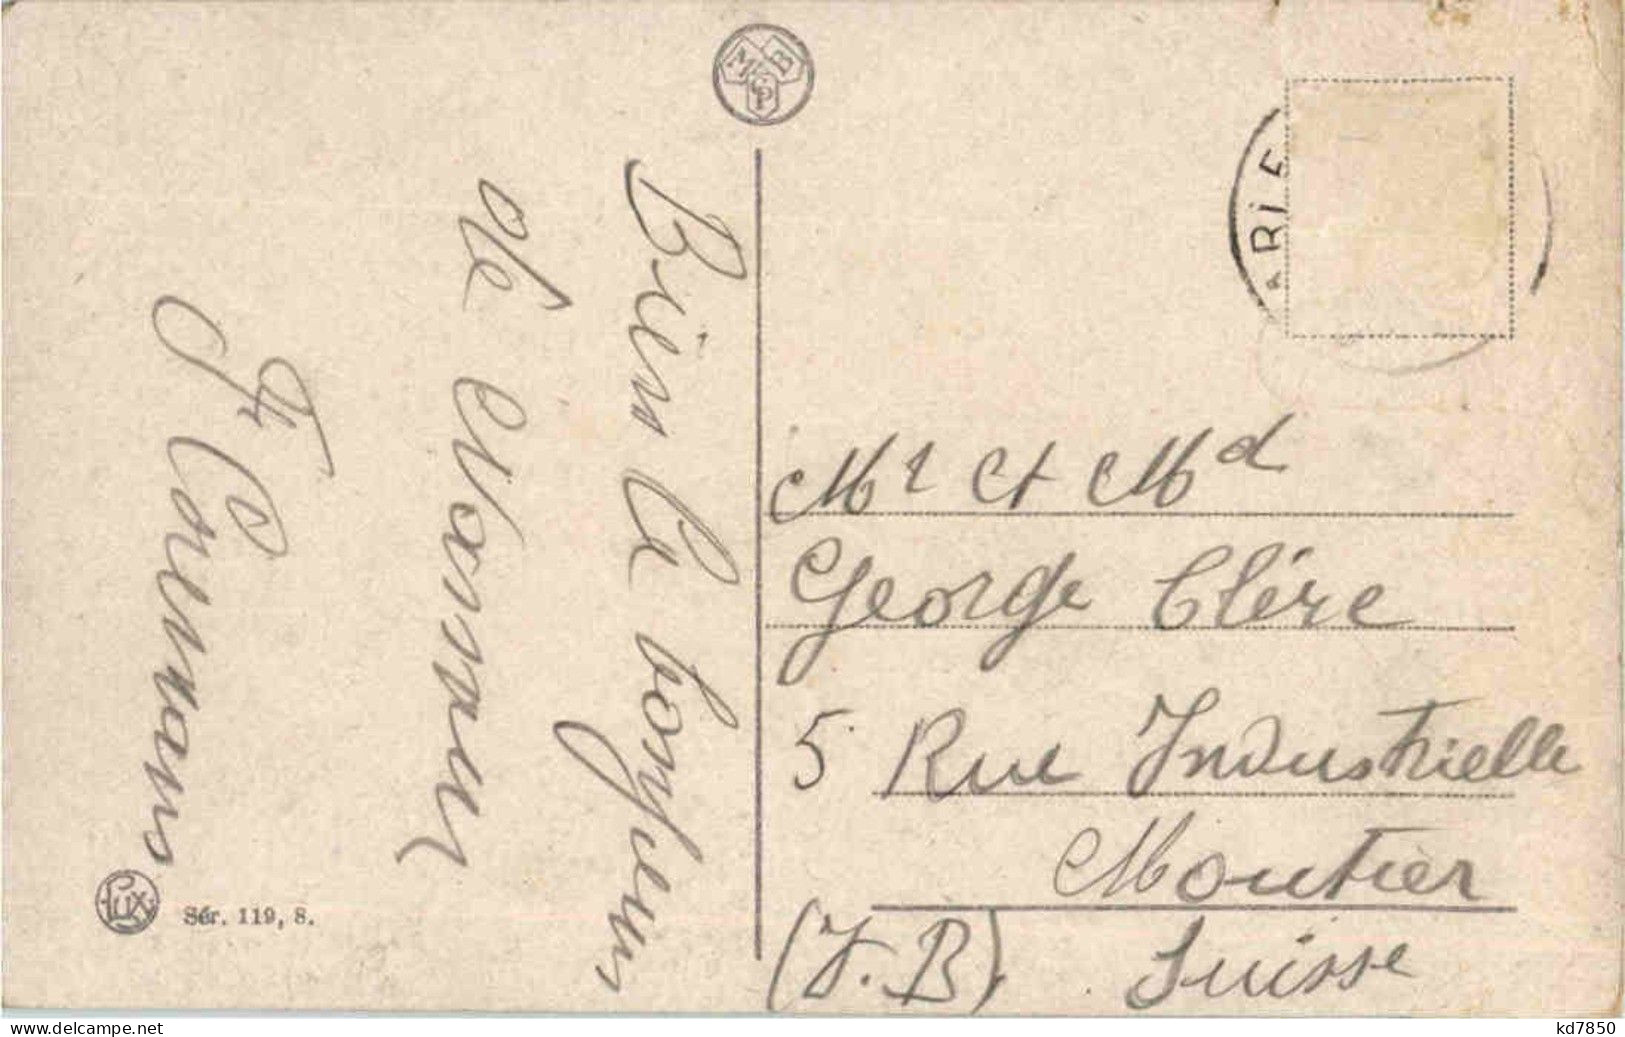 M B
G P
ARLE
Bien le bonjour
de Warneu
F Coremans
Mr et Md
George Clére
5 Rue Industrielle
Moutier
(J. B). Suisse
Lux
Sér. 119, 8.
www.delcampe.net
kd7850